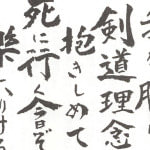 剣道理念
抱きしめて
死に行く今日ぞ
楽しかりける